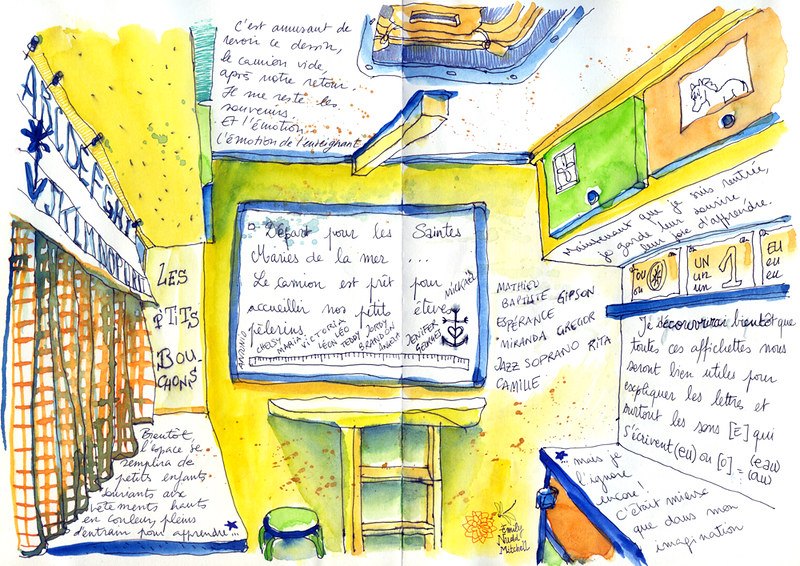 C'est amusant de
revoir ce dessin,
le camion vide,
après notre retour.
Il me reste les
souvenirs.
Et l'émotion...
L'émotion de l'enseignant
ABCDEEFGH
IJKLMNOP
LES
P'TITS
BOU-
CHONS
Départ pour les Saintes
Maries de la mer ...
Le camion est prêt pour
accueillir nos petits élèves
pèlerins.
MICKAËL
ANTONIO
CHELSY
MARIA
VICTORIA
LÉON LÉO
TEDDY JORDY
BRANDON
ANGELO
JENIFER
GEORGES
MATHIEU
BAPTISTE GIPSON
ESPÉRANCE
MIRANDA GREGOR
JAZZ SOPRANO RITA
CAMILLE
Maintenant que je suis rentrée,
je garde leur sourire,
leur joie d'apprendre.
OU
ou
UN
un
un
1
EU
eu
eu
Je découvrirai bientôt que
toutes ces affichettes nous
seront bien utiles pour
expliquer les lettres et
surtout les sons [E] qui
s'écrivent (eu) ou [O] = (eau)
(au)
... mais je
l'ignore
encore!
C'était mieux
que dans mon
imagination
Bientôt,
l'espace se
remplira de
petits enfants
souriants aux
vêtements hauts
en couleur, pleins
d'entrain pour apprendre...
Emily
Nudd
Mitchell